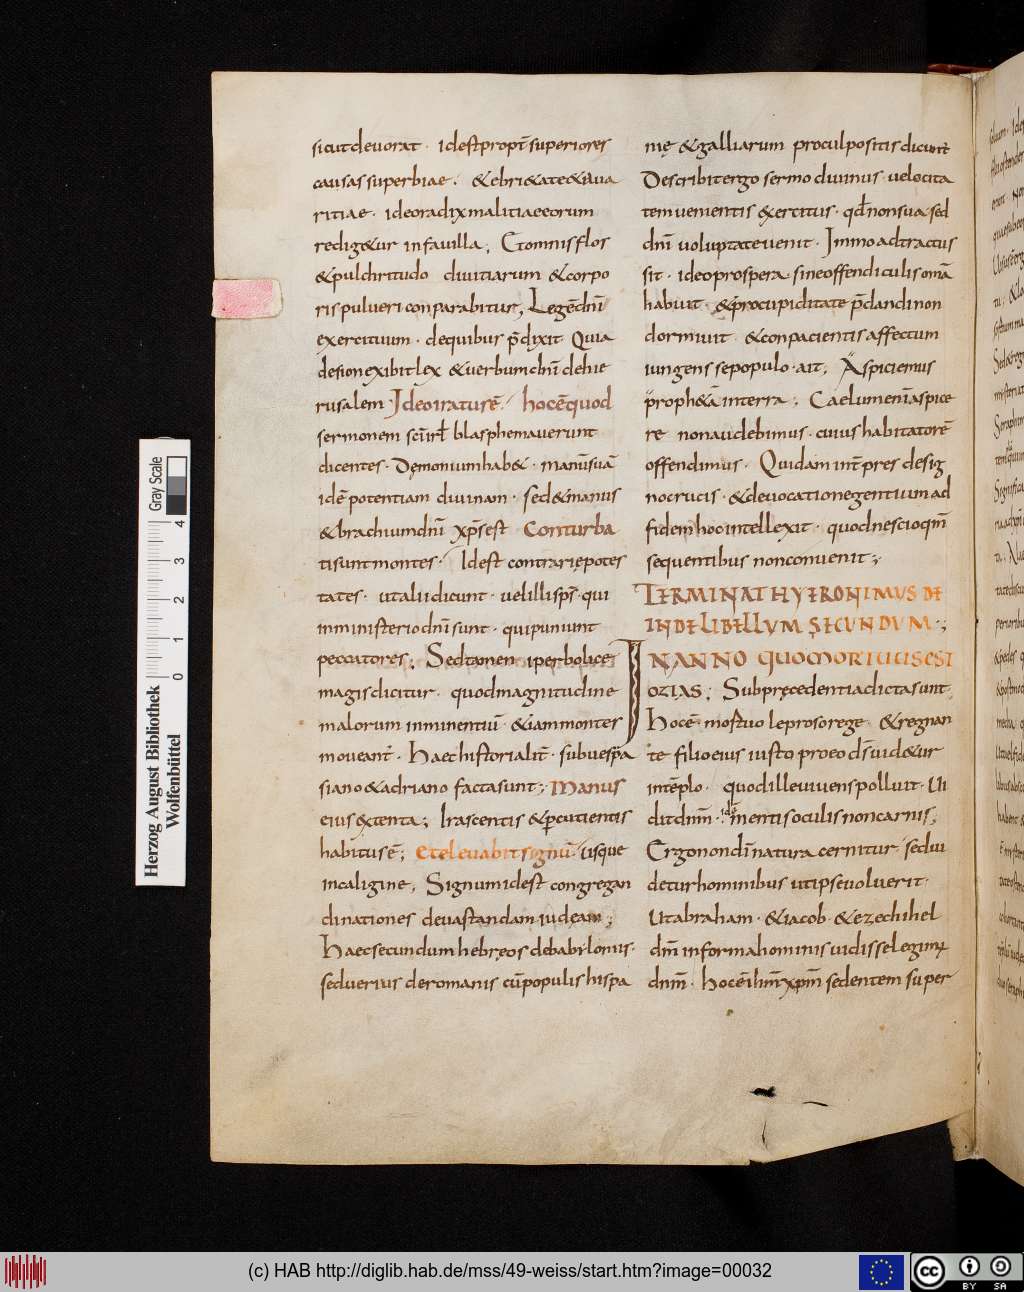 sicut deuorat · id est propt̄ superiores
causas superbiae · & ebri&ate & aua
ritiae · ideo radix malitiae eorum
redig&ur in fauilla ; Et omnis flos
& pulchritudo diuitiarum & corpo
ris pulueri conparabitur ; Legē dn̄i
exercituum · de quibus p̄dixit Quia
de sion exibit lex & uerbum dn̄i de hie
rusalem Ideo iratus ē · hoc ē quod
sermonem sc̄i isrl̄ blasphemauerunt
dicentes · Dęmonium hab& · manū suā
id ē potentiam diuinam · sed & manus
& brachium dn̄i xp̄s est Conturba
ti sunt montes · Id est contrarię potes
tates · ut alii dicunt · uel illi sps̄ · qui
in ministerio dn̄i sunt · qui puniunt
peccatores ; Sed tamen iperbolice
magis dicitur · quod magnitudine
malorum inminentiū · & iam montes
moueant̄ · Haec historialit̄ · sub uespa
siano & adriano facta sunt ; Manus
eius extenta ; Irascentis & percutientis
habitus ē ; Et eleuabit signū usque
in caligine ; Signum id est congregan
di nationes deuastandam iudeam ;
Haec secundum hebreos de babilonus ·
sed uerius de romanis cū populis hispa
nię & galliarum procul positis dicunt̄
Describit ergo sermo diuinus · uelocita
tem uenientis exercitus · qd̄ non sua sed
dn̄i uoluptate uenit · Immo adtractus
sit · ideo prospera · sine offendiculis om̄ā
habuit · & p̄ cupiditate p̄dandi non
dormiuit · & conpacientis affectum
iungens se populo · ait ; Aspiciemus
proph&ā in terra ; Caelum eni aspice
re non audebimus · cuius habitatorē
offendimus · Quidam int̄pres de sig
no crucis · & de uocatione gentium ad
fidem hoc intellexit · quod nescio qm̄
sequentibus non conuenit ;
TERMINAT HYERONIMUS DE
INDE LIBELLUM SECUNDUM · ;
IN ANNO QUO MORTUUS EST
OZIAS ; Sub precedentia dicta sunt
Hoc ē mostuo leproso rege · & regnan
te filio eius iusto pro eo d̄s uid&ur
in tēplo · quod ille uiuens polluit · Ui
dit dnm̄ · mentis oculis non carnis ;
Ergo non dī natura cernitur · sed ui
detur hominibus ut ipse uoluerit ·
Ut abraham · & iacob · & ezechihel
dm̄ in forma hominis uidisse legim;
dnm̄ · hoc ē ihm̄ xpm̄ sedentem super
Herzog August Bibliothek
Wolfenbüttel
Gray Scale
0 1 2 3 4
(c) HAB http://diglib.hab.de/mss/49-weiss/start.htm?image=00032
cc BY SA